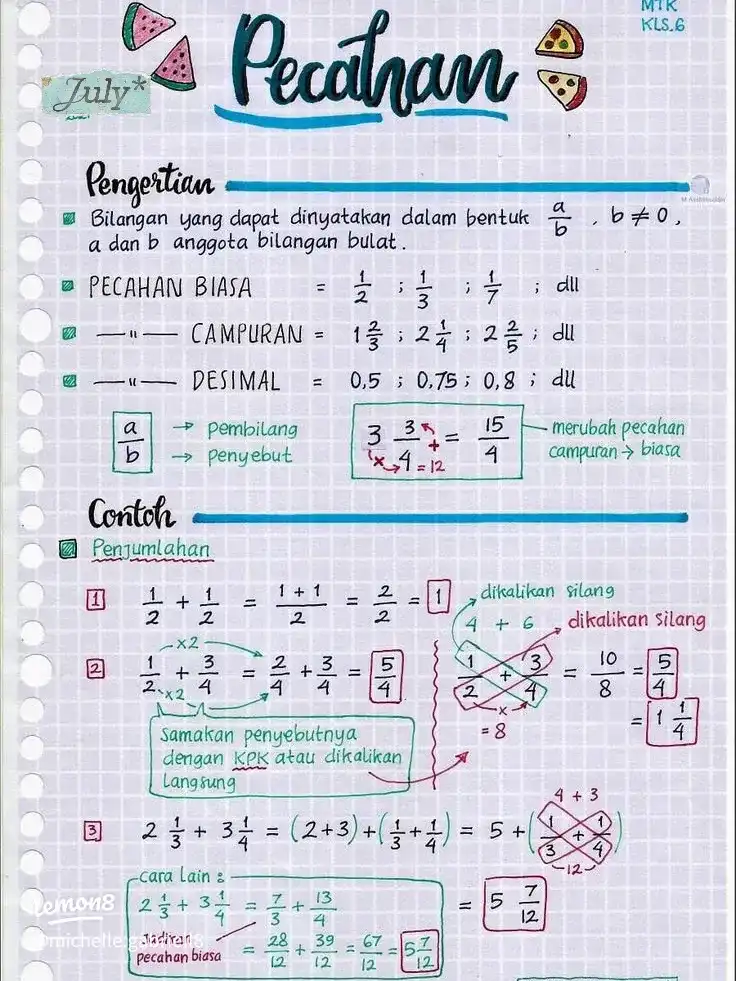 MTK
KLS.6
Pecahan
July*
Pengertian
Bilangan yang dapat dinyatakan dalam bentuk a/b , b ≠ 0,
a dan b anggota bilangan bulat.
PECAHAN BIASA = 1/2 ; 1/3 ; 1/7 ; dll
—"— CAMPURAN = 1 2/3 ; 2 1/4 ; 2 2/5 ; dll
—"— DESIMAL = 0,5 ; 0,75 ; 0,8 ; dll
a → pembilang
b → penyebut
3 3/4 = 15/4
x + = 12
merubah pecahan
campuran → biasa
Contoh
Penjumlahan
1 1/2 + 1/2 = 1 + 1/2 = 2/2 = 1
2 1/2 + 3/4 = 2/4 + 3/4 = 5/4
x2
x2
Samakan penyebutnya
dengan KPK atau dikalikan
langsung
dikalikan silang
4 + 6
dikalikan silang
1/2 + 3/4 = 10/8 = 5/4
x
= 8
= 1 1/4
3 2 1/3 + 3 1/4 = (2+3) + (1/3 + 1/4) = 5 + (1/3 + 1/4)
4 + 3
12
= 5 7/12
cara lain :
2 1/3 + 3 1/4 = 7/3 + 13/4
pecahan biasa
= 28/12 + 39/12 = 67/12 = 5 7/12
lemon8